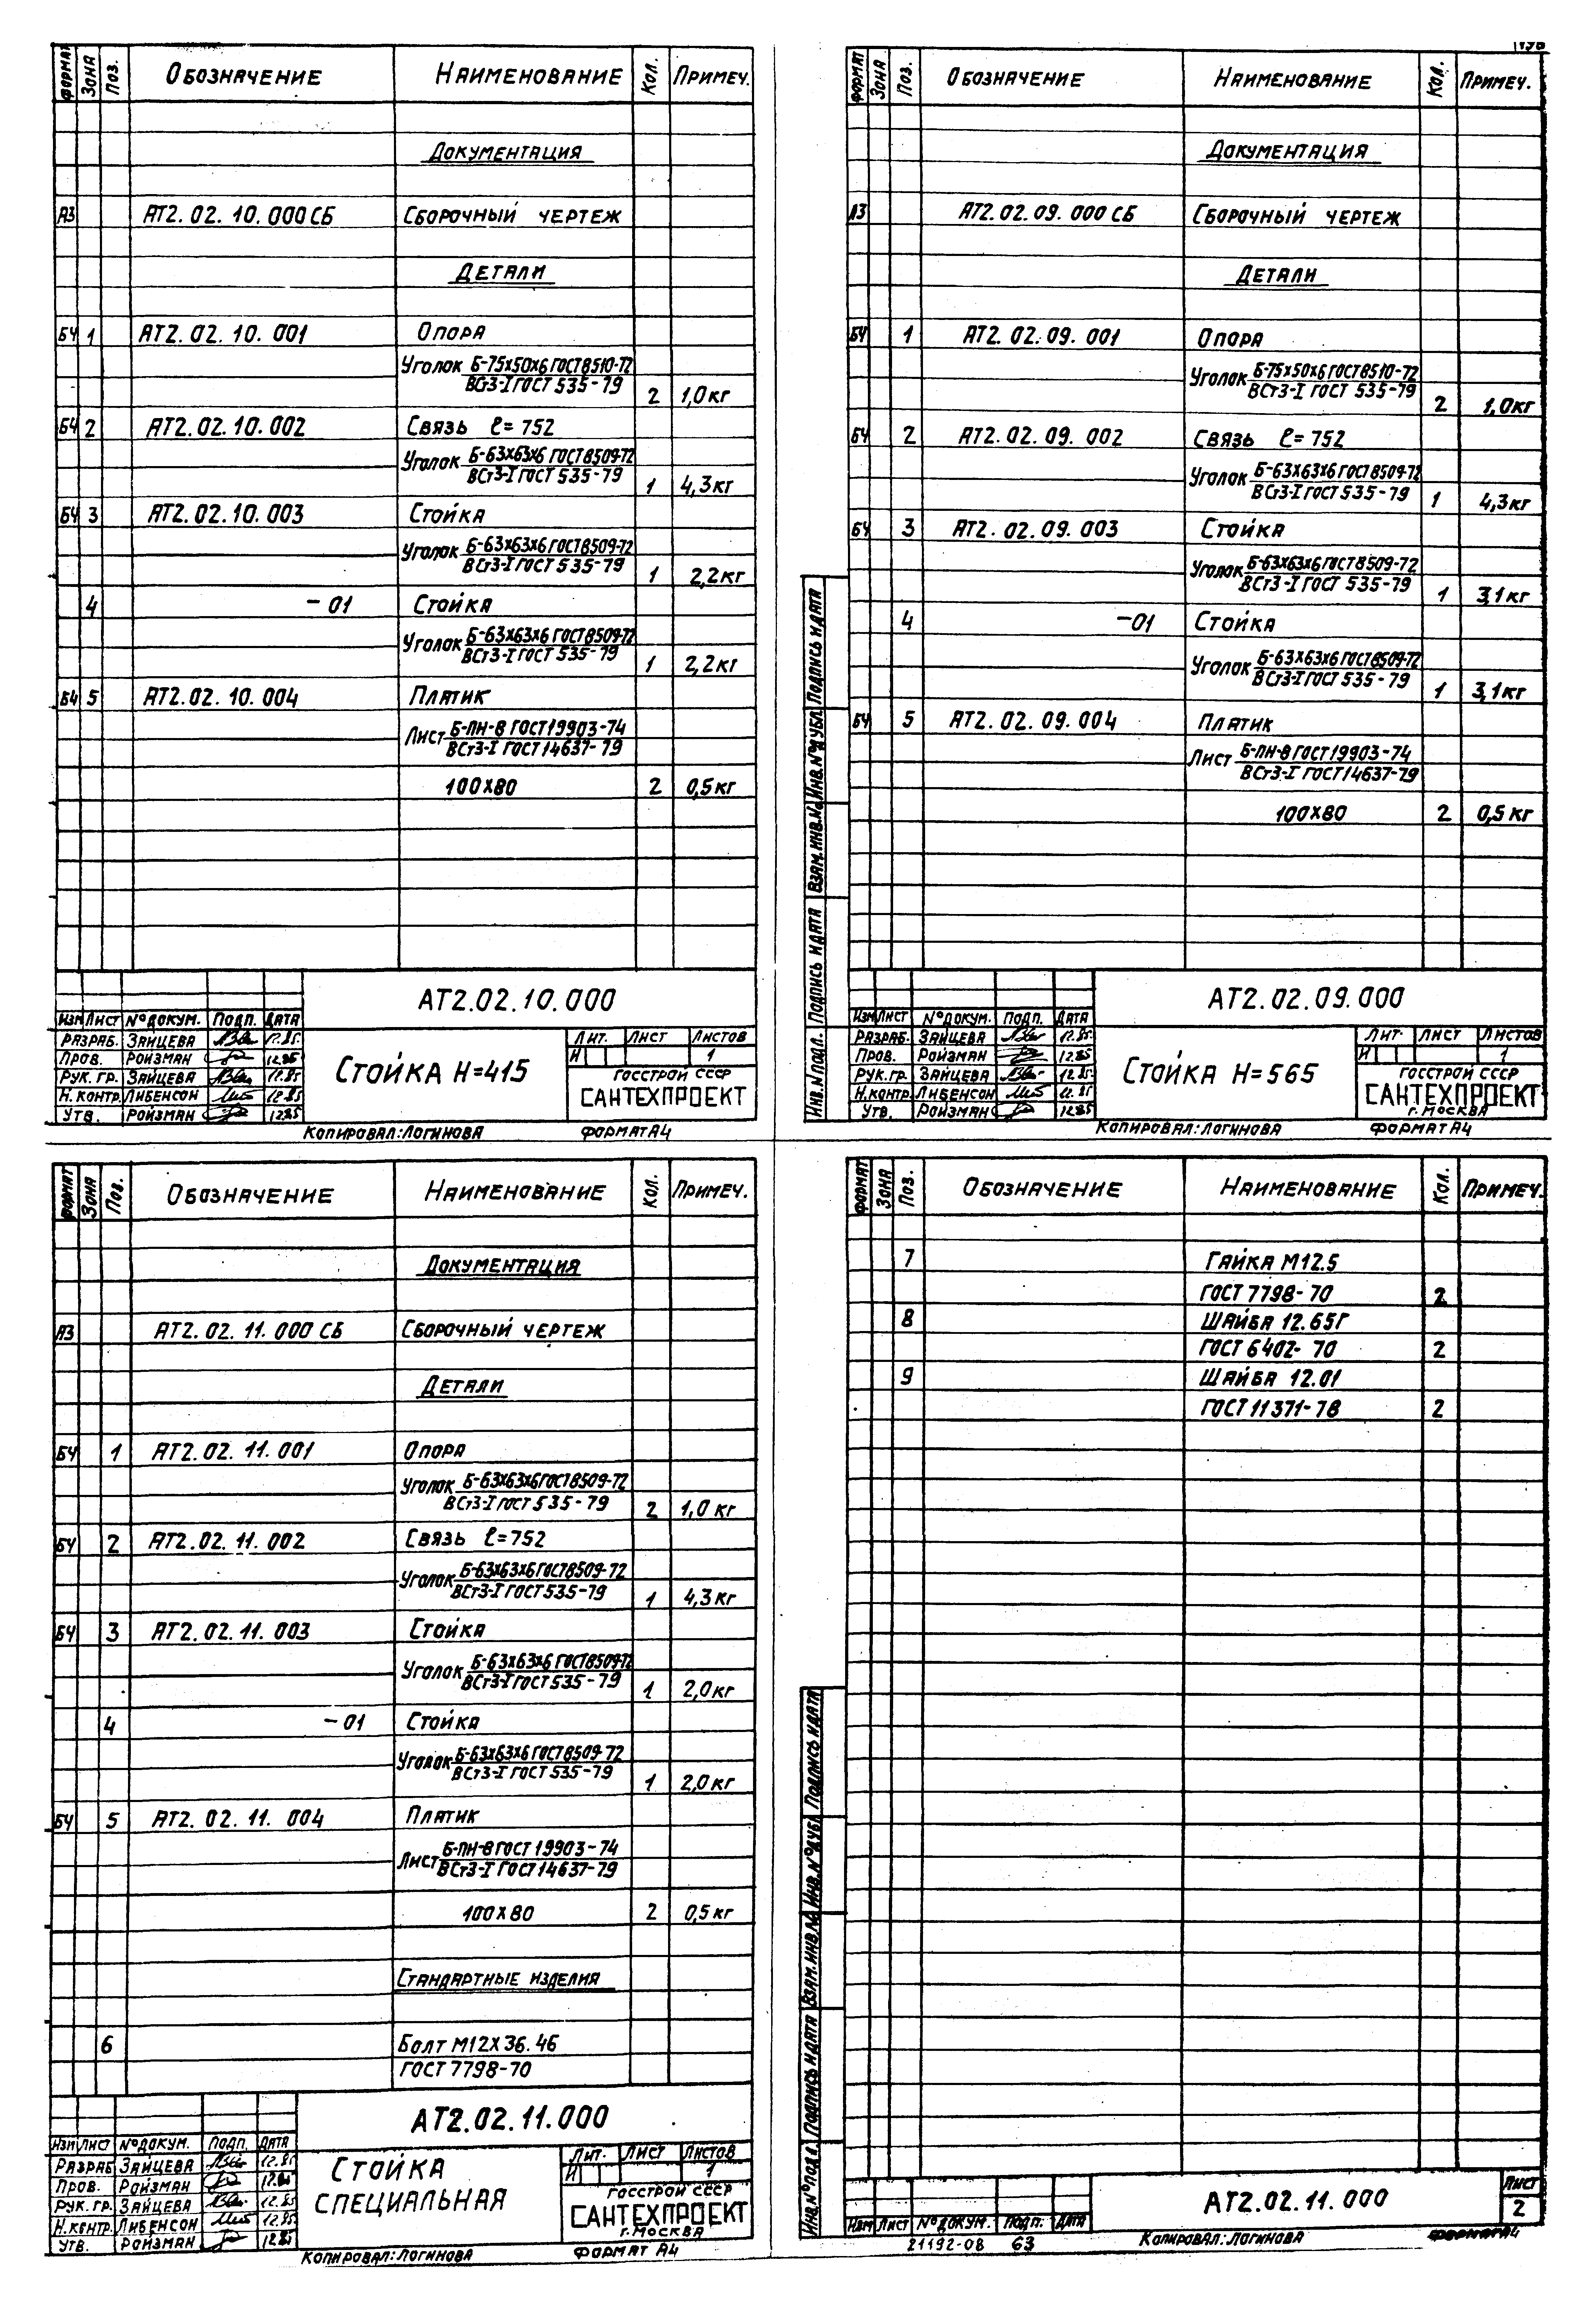 ФОРМАТ ЗОНА ПОЗ. ОБОЗНАЧЕНИЕ НАИМЕНОВАНИЕ КОЛ. ПРИМЕЧ.
ДОКУМЕНТАЦИЯ
А3 АТ2.02.10.000 СБ СБОРОЧНЫЙ ЧЕРТЕЖ
ДЕТАЛИ
БЧ 1 АТ2.02.10.001 ОПОРА
УГОЛОК Б-75х50х6 ГОСТ 8510-72
ВСт3-I ГОСТ 535-79
2 1,0 кг
БЧ 2 АТ2.02.10.002 СВЯЗЬ ℓ=752
УГОЛОК Б-63х63х6 ГОСТ 8509-72
ВСт3-I ГОСТ 535-79
1 4,3 кг
БЧ 3 АТ2.02.10.003 СТОЙКА
УГОЛОК Б-63х63х6 ГОСТ 8509-72
ВСт3-I ГОСТ 535-79
1 2,2 кг
4 -01 СТОЙКА
УГОЛОК Б-63х63х6 ГОСТ 8509-72
ВСт3-I ГОСТ 535-79
1 2,2 кг
БЧ 5 АТ2.02.10.004 ПЛАТИК
ЛИСТ Б-ПН-8 ГОСТ 19903-74
ВСт3-I ГОСТ 14637-79
100х80 2 0,5 кг
АТ2.02.10.000
ИЗМ ЛИСТ № ДОКУМ. ПОДП. ДАТА
РАЗРАБ. ЗАЙЦЕВА 12.85
ПРОВ. РОЙЗМАН 12.85
РУК. ГР. ЗАЙЦЕВА 12.85
Н.КОНТР. ЛИБЕНСОН 12.85
УТВ. РОЙЗМАН 12.85
СТОЙКА Н=415
ЛИТ. ЛИСТ ЛИСТОВ
И 1
ГОССТРОЙ СССР
САНТЕХПРОЕКТ
КОПИРОВАЛ: ЛОГИНОВА ФОРМАТ А4
ФОРМАТ ЗОНА ПОЗ. ОБОЗНАЧЕНИЕ НАИМЕНОВАНИЕ КОЛ. ПРИМЕЧ.
ДОКУМЕНТАЦИЯ
А3 АТ2.02.09.000 СБ СБОРОЧНЫЙ ЧЕРТЕЖ
ДЕТАЛИ
БЧ 1 АТ2.02.09.001 ОПОРА
УГОЛОК Б-75х50х6 ГОСТ 8510-72
ВСт3-I ГОСТ 535-79
2 1,0 кг
БЧ 2 АТ2.02.09.002 СВЯЗЬ ℓ=752
УГОЛОК Б-63х63х6 ГОСТ 8509-72
ВСт3-I ГОСТ 535-79
1 4,3 кг
БЧ 3 АТ2.02.09.003 СТОЙКА
УГОЛОК Б-63х63х6 ГОСТ 8509-72
ВСт3-I ГОСТ 535-79
1 3,1 кг
4 -01 СТОЙКА
УГОЛОК Б-63х63х6 ГОСТ 8509-72
ВСт3-I ГОСТ 535-79
1 3,1 кг
БЧ 5 АТ2.02.09.004 ПЛАТИК
ЛИСТ Б-ПН-8 ГОСТ 19903-74
ВСт3-I ГОСТ 14637-79
100х80 2 0,5 кг
ИНВ. № ПОДЛ. ПОДПИСЬ И ДАТА ВЗАМ. ИНВ. № ИНВ. № ДУБЛ. ПОДПИСЬ И ДАТА
АТ2.02.09.000
ИЗМ ЛИСТ № ДОКУМ. ПОДП. ДАТА
РАЗРАБ. ЗАЙЦЕВА 12.85
ПРОВ. РОЙЗМАН 12.85
РУК. ГР. ЗАЙЦЕВА 12.85
Н.КОНТР. ЛИБЕНСОН 12.85
УТВ. РОЙЗМАН 12.85
СТОЙКА Н=565
ЛИТ. ЛИСТ ЛИСТОВ
И 1
ГОССТРОЙ СССР
САНТЕХПРОЕКТ
г. МОСКВА
КОПИРОВАЛ: ЛОГИНОВА ФОРМАТ А4
ФОРМАТ ЗОНА ПОЗ. ОБОЗНАЧЕНИЕ НАИМЕНОВАНИЕ КОЛ. ПРИМЕЧ.
ДОКУМЕНТАЦИЯ
А3 АТ2.02.11.000 СБ СБОРОЧНЫЙ ЧЕРТЕЖ
ДЕТАЛИ
БЧ 1 АТ2.02.11.001 ОПОРА
УГОЛОК Б-63х63х6 ГОСТ 8509-72
ВСт3-I ГОСТ 535-79
2 1,0 кг
БЧ 2 АТ2.02.11.002 СВЯЗЬ ℓ=752
УГОЛОК Б-63х63х6 ГОСТ 8509-72
ВСт3-I ГОСТ 535-79
1 4,3 кг
БЧ 3 АТ2.02.11.003 СТОЙКА
УГОЛОК Б-63х63х6 ГОСТ 8509-72
ВСт3-I ГОСТ 535-79
1 2,0 кг
4 -01 СТОЙКА
УГОЛОК Б-63х63х6 ГОСТ 8509-72
ВСт3-I ГОСТ 535-79
1 2,0 кг
БЧ 5 АТ2.02.11.004 ПЛАТИК
ЛИСТ Б-ПН-8 ГОСТ 19903-74
ВСт3-I ГОСТ 14637-79
100х80 2 0,5 кг
СТАНДАРТНЫЕ ИЗДЕЛИЯ
6 БОЛТ М12х36.46
ГОСТ 7798-70
АТ2.02.11.000
ИЗМ ЛИСТ № ДОКУМ. ПОДП. ДАТА
РАЗРАБ ЗАЙЦЕВА 12.85
ПРОВ. РОЙЗМАН 12.85
РУК. ГР. ЗАЙЦЕВА 12.85
Н.КОНТР. ЛИБЕНСОН 12.85
УТВ. РОЙЗМАН 12.85
СТОЙКА
СПЕЦИАЛЬНАЯ
ЛИТ. ЛИСТ ЛИСТОВ
И 1
ГОССТРОЙ СССР
САНТЕХПРОЕКТ
г. МОСКВА
КОПИРОВАЛ: ЛОГИНОВА ФОРМАТ А4
ФОРМАТ ЗОНА ПОЗ. ОБОЗНАЧЕНИЕ НАИМЕНОВАНИЕ КОЛ. ПРИМЕЧ.
7 ГАЙКА М12.5
ГОСТ 7798-70 2
8 ШАЙБА 12.65Г
ГОСТ 6402-70 2
9 ШАЙБА 12.01
ГОСТ 11371-78 2
ИНВ. № ПОДЛ. ПОДПИСЬ И ДАТА ВЗАМ. ИНВ. № ИНВ. № ДУБЛ ПОДПИСЬ И ДАТА
АТ2.02.11.000
ЛИСТ
2
ИЗМ ЛИСТ № ДОКУМ. ПОДП. ДАТА
21192-08 63
КОПИРОВАЛ: ЛОГИНОВА ФОРМАТ А4